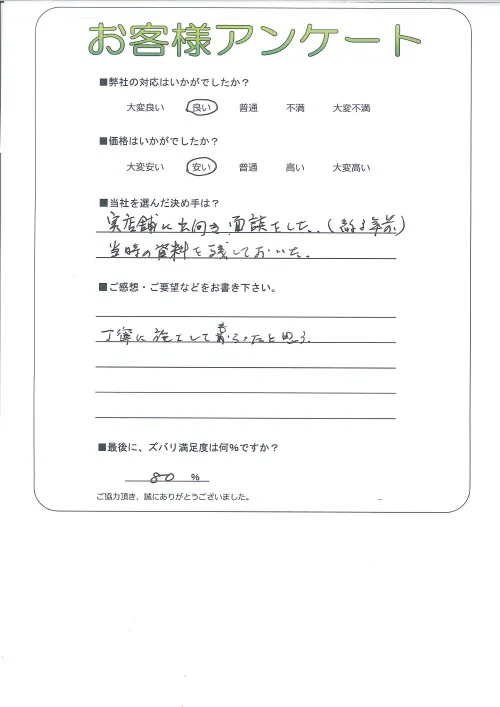 お客様アンケート
■弊社の対応はいかがでしたか？
大変良い 良い 普通 不満 大変不満
■価格はいかがでしたか？
大変安い 安い 普通 高い 大変高い
■当社を選んだ決め手は？
実店舗に出向き面談をした。(約3年前)
当時の資料を残しておいた。
■ご感想・ご要望などをお書き下さい。
丁寧に施工して貰らったと思う。
■最後に、ズバリ満足度は何%ですか？
80 %
ご協力頂き、誠にありがとうございました。